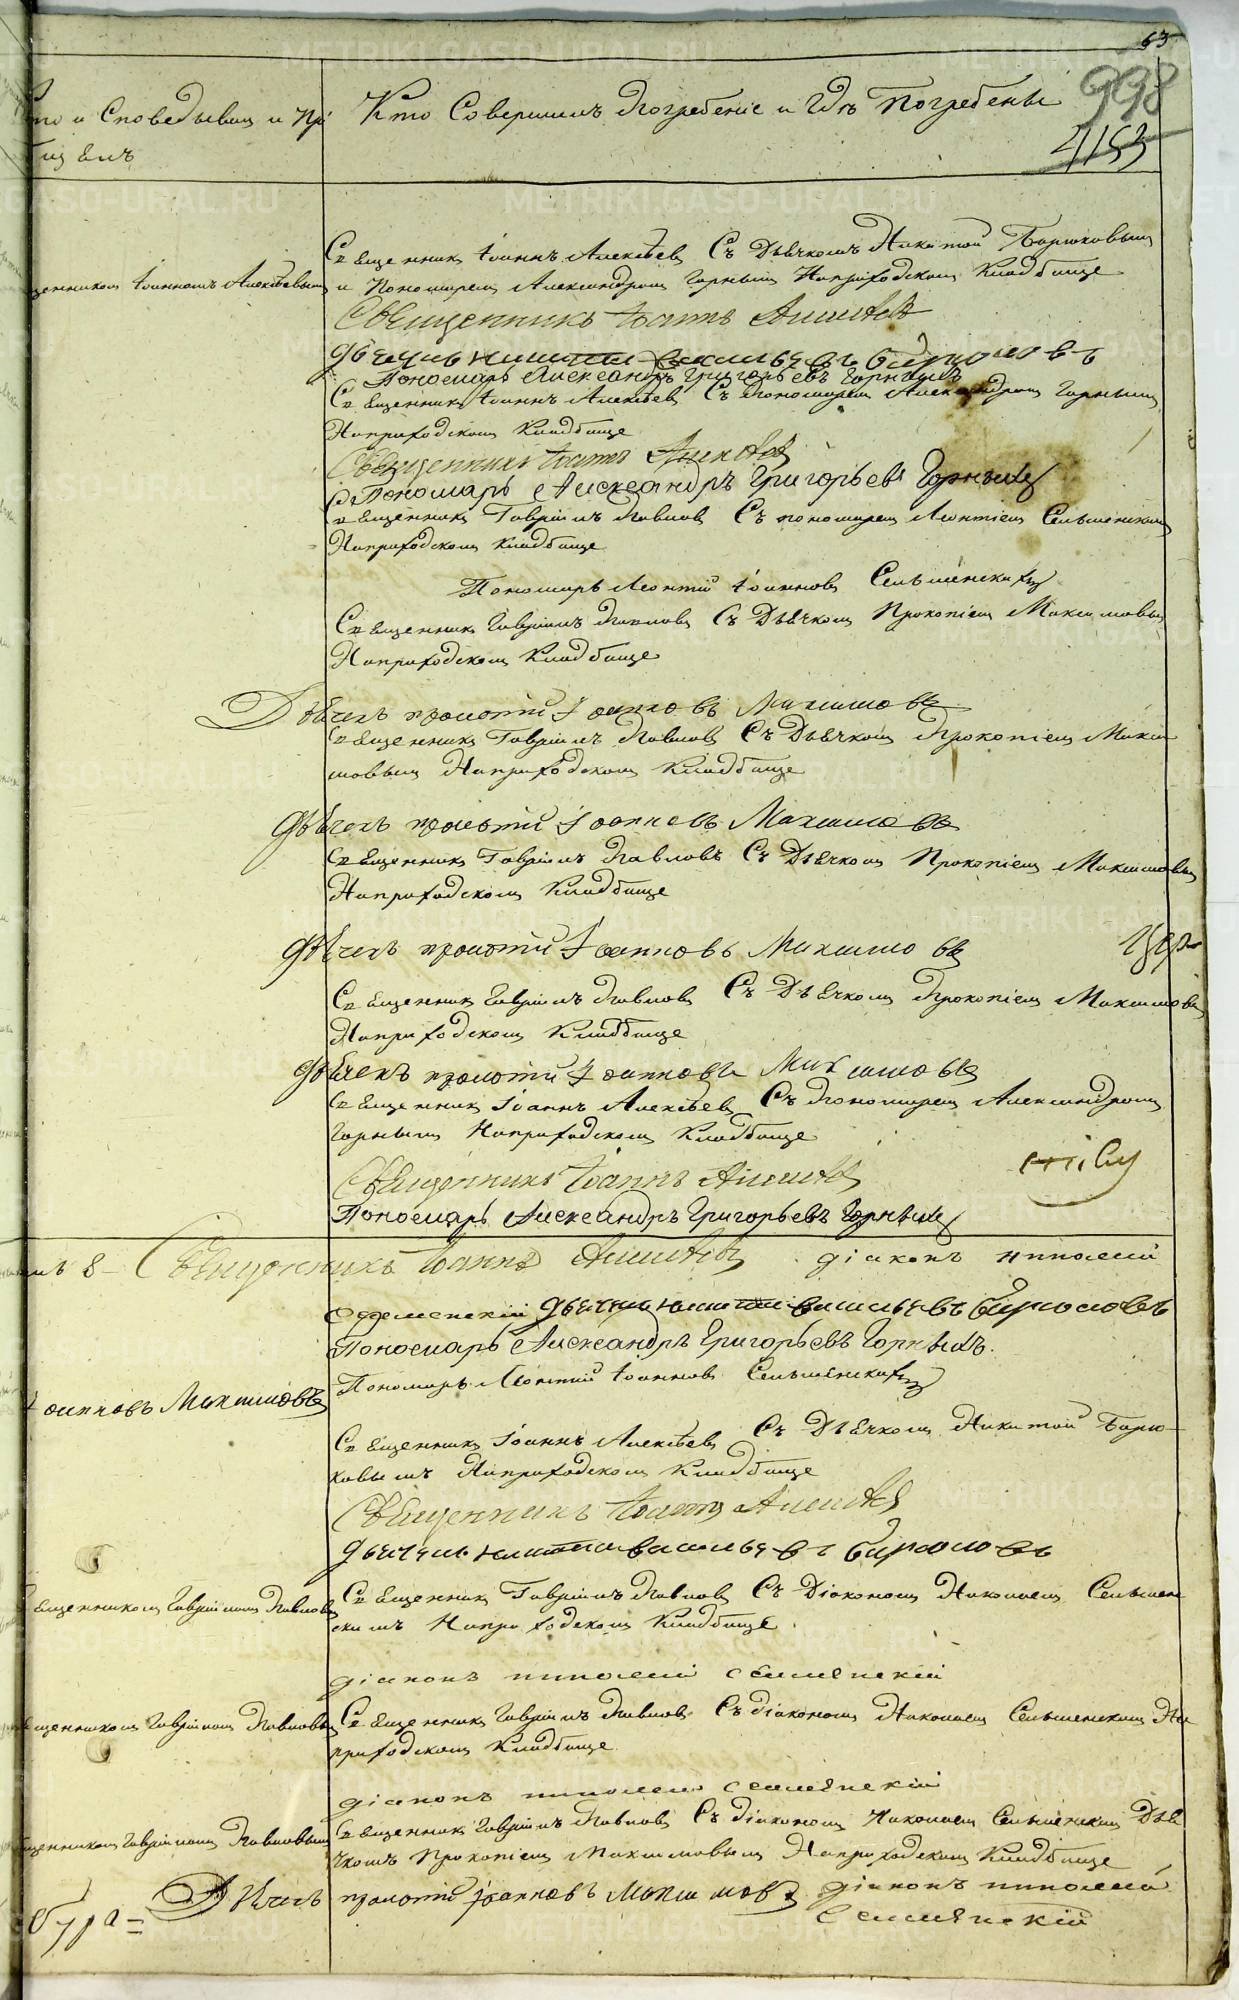 63
998
4153
Кто Исповедывал и прі
бщалъ
Кто Совершилъ Погребеніе и Гдѣ Погребены
Священникъ Іоаннъ Алексѣевъ Съ Дьячкомъ Никитой Бирюковымъ
щенникомъ Іоанномъ Алексѣевымъ
и Пономаремъ Александромъ Горнымъ Наприходскомъ Кладбище
Священникъ Іоаннъ Алексѣевъ
Дьячекъ Никита Васильевъ Бирюковъ
Пономарь Александръ Григорьевъ Горныхъ
Священникъ Іоаннъ Алексѣевъ Съ Пономаремъ Александромъ Горнымъ
Наприходскомъ Кладбище
Священникъ Іоаннъ Алексѣевъ
Пономарь Александръ Григорьевъ Горныхъ
Священникъ Гавріилъ Павловъ Съ пономаремъ Леонтіемъ Сельменскимъ
Наприходскомъ Кладбище
Пономарь Леонтій Іоанновъ Сельменскихъ
Священникъ Гавріилъ Павловъ Съ Дьячкомъ Прокопіемъ Максимовымъ
Наприходскомъ Кладбище
Дьячекъ прокопій Іоанновъ Максимовъ
Священникъ Гавріилъ Павловъ Съ Дьячкомъ Прокопіемъ Макси
мовымъ Наприходскомъ Кладбище
Дьячекъ прокопій Іоанновъ Максимовъ
Священникъ Гавріилъ Павловъ Съ Дьячкомъ Прокопіемъ Максимовымъ
Наприходскомъ Кладбище
Дьячекъ прокопій Іоанновъ Максимовъ
Священникъ Гавріилъ Павловъ Съ Дьячкомъ Прокопіемъ Максимовы
Наприходскомъ Кладбище
Дьячекъ прокопій Іоанновъ Максимовъ
Священникъ Іоаннъ Алексѣевъ Съ Пономаремъ Александромъ
Горнымъ Наприходскомъ Кладбище
Священникъ Іоаннъ Алексѣевъ
Пономарь Александръ Григорьевъ Горныхъ
8 Священникъ Іоаннъ Алексѣевъ діаконъ николай
Дьячекъ Никита Васильевъ Бирюковъ
Пономарь Александръ Григорьевъ Горныхъ.
Пономарь Леонтій Іоанновъ Сельменскихъ
Іоанновъ Максимовъ
Священникъ Іоаннъ Алексѣевъ Съ Дьячкомъ Никитой Бирю-
ковымъ Наприходскомъ Кладбище
Священникъ Іоаннъ Алексѣевъ
Дьячекъ Никита Васильевъ Бирюковъ
Священникъ Гавріилъ Павловъ Съ Діакономъ Николаемъ Сельмен
щенникомъ Гавріиломъ Павловы
скимъ Наприходскомъ Кладбище
діаконъ николай селменскій
Священникъ Гавріилъ Павловъ Съ діакономъ Николаемъ Сельменскимъ На
щенникомъ Гавріиломъ Павловымъ
приходскомъ Кладбище
діаконъ николай селменскій
Священникъ Гавріилъ Павловъ Съ діакономъ Николаемъ Сельменскимъ Дья
щенникомъ Гавріиломъ Павловымъ
чкомъ Прокопіемъ Максимовымъ Наприходскомъ Кладбище
Дьячекъ прокопій Іоанновъ Максимовъ діаконъ николай
селменскій